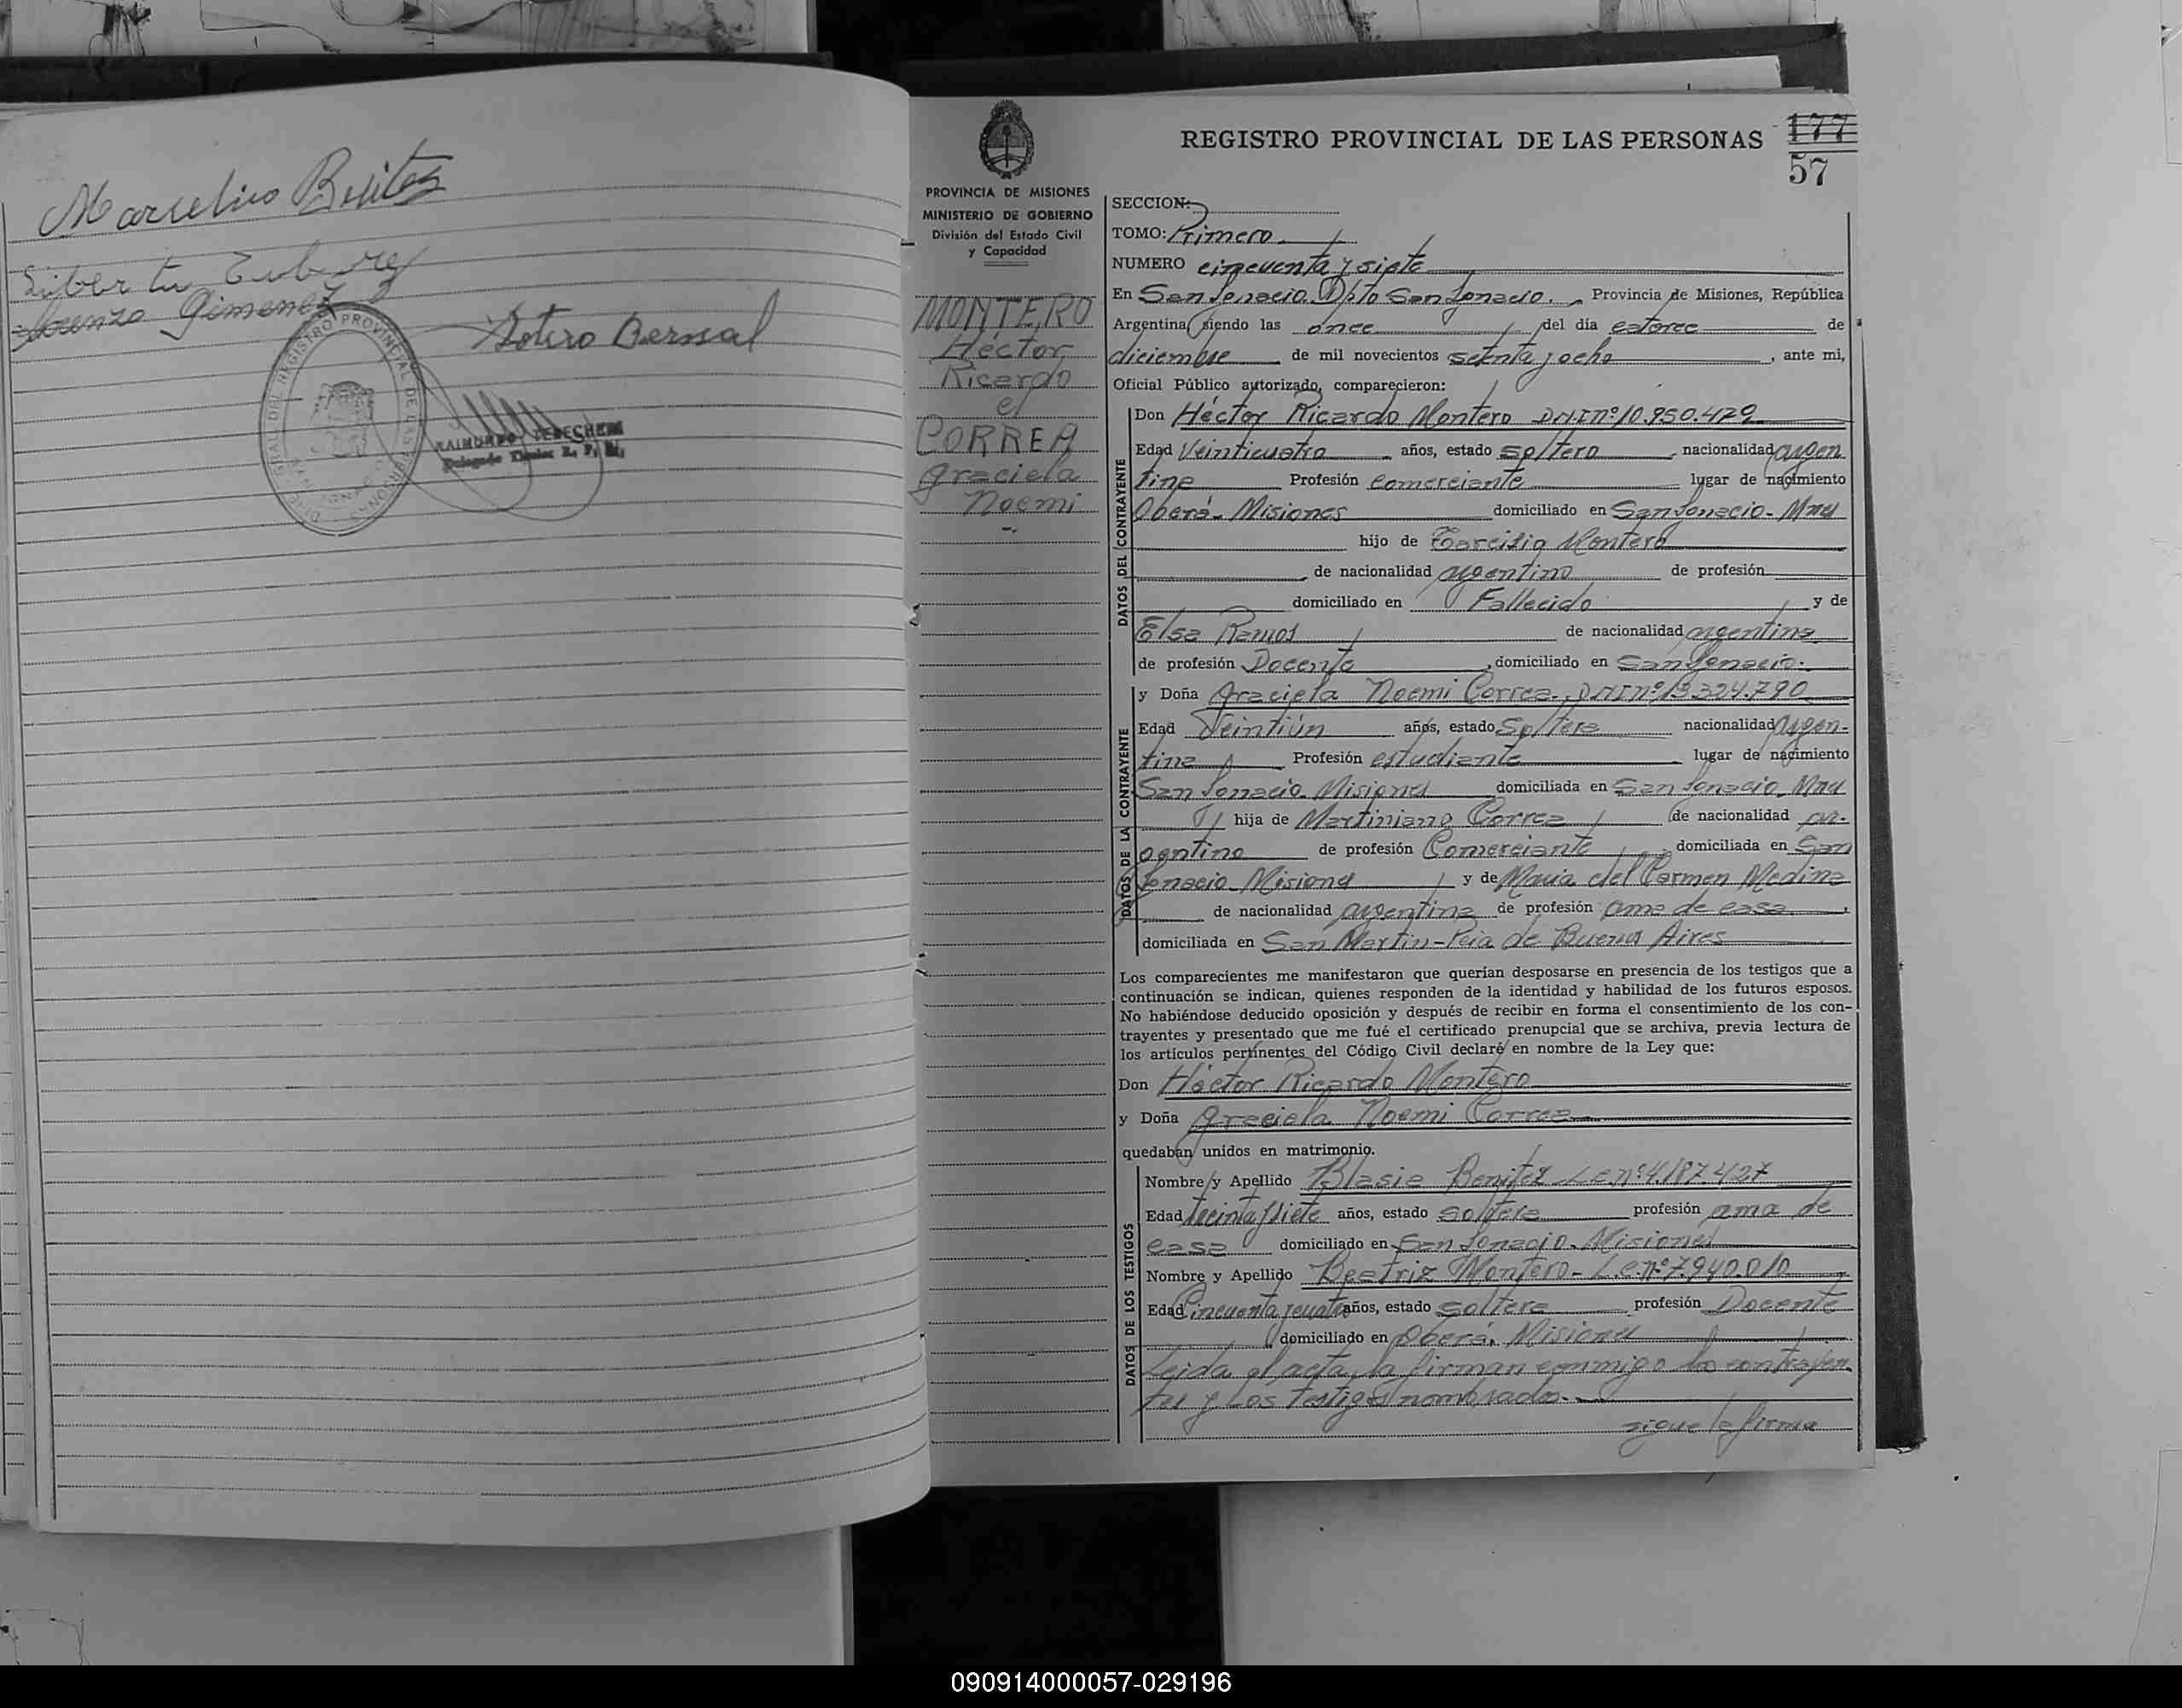 Marcelino Benitez
Gimenez
Sotero Bernal
REGISTRO PROVINCIAL DE LAS PERSONAS
177
57
PROVINCIA DE MISIONES
MINISTERIO DE GOBIERNO
División del Estado Civil
y Capacidad
MONTERO
Héctor
Ricardo
e/
CORREA
Graciela
Noemi
SECCION:
TOMO: Primero
NUMERO cincuenta y siete
En San Ignacio Dpto San Ignacio. Provincia de Misiones, República
Argentina, siendo las once del día catorce de
diciembre de mil novecientos setenta y ocho, ante mi,
Oficial Público autorizado, comparecieron:
DATOS DEL CONTRAYENTE
Don Héctor Ricardo Montero DNI nº 10.950.479
Edad Veinticuatro años, estado soltero nacionalidad argen
tina Profesión comerciante lugar de nacimiento
Oberá - Misiones domiciliado en San Ignacio - Mnes
hijo de Tarcisio Montero
de nacionalidad argentino de profesión
domiciliado en Fallecido y de
Elsa Ramos de nacionalidad argentina
de profesión Docente, domiciliado en San Ignacio.
DATOS DE LA CONTRAYENTE
y Doña Graciela Noemi Correa. DNI nº 13.324.790
Edad Veintiún años, estado Soltera nacionalidad argen-
tina Profesión estudiante lugar de nacimiento
San Ignacio. Misiones domiciliada en San Ignacio. Mnes
hija de Martiniano Correa de nacionalidad ar-
gentino de profesión Comerciante, domiciliada en San
Ignacio - Misiones y de Maria del Carmen Medina
de nacionalidad argentina de profesión ama de casa,
domiciliada en San Martin - Pcia de Buenos Aires
Los comparecientes me manifestaron que querían desposarse en presencia de los testigos que a
continuación se indican, quienes responden de la identidad y habilidad de los futuros esposos.
No habiéndose deducido oposición y después de recibir en forma el consentimiento de los con-
trayentes y presentado que me fué el certificado prenupcial que se archiva, previa lectura de
los artículos pertinentes del Código Civil declaré en nombre de la Ley que:
Don Héctor Ricardo Montero
y Doña Graciela Noemi Correa
quedaban unidos en matrimonio.
DATOS DE LOS TESTIGOS
Nombre y Apellido Blasia Benitez L.C. nº 4.187.427
Edad treinta y siete años, estado soltera profesión ama de
casa domiciliado en San Ignacio. Misiones
Nombre y Apellido Beatriz Montero - L.C. nº 7.940.010
Edad Cincuenta y cuatro años, estado soltera profesión Docente
domiciliado en Oberá. Misiones
Leida el acta, la firman conmigo los contrayen
tes y los testigos nombrados.
sigue la firma
090914000057-029196